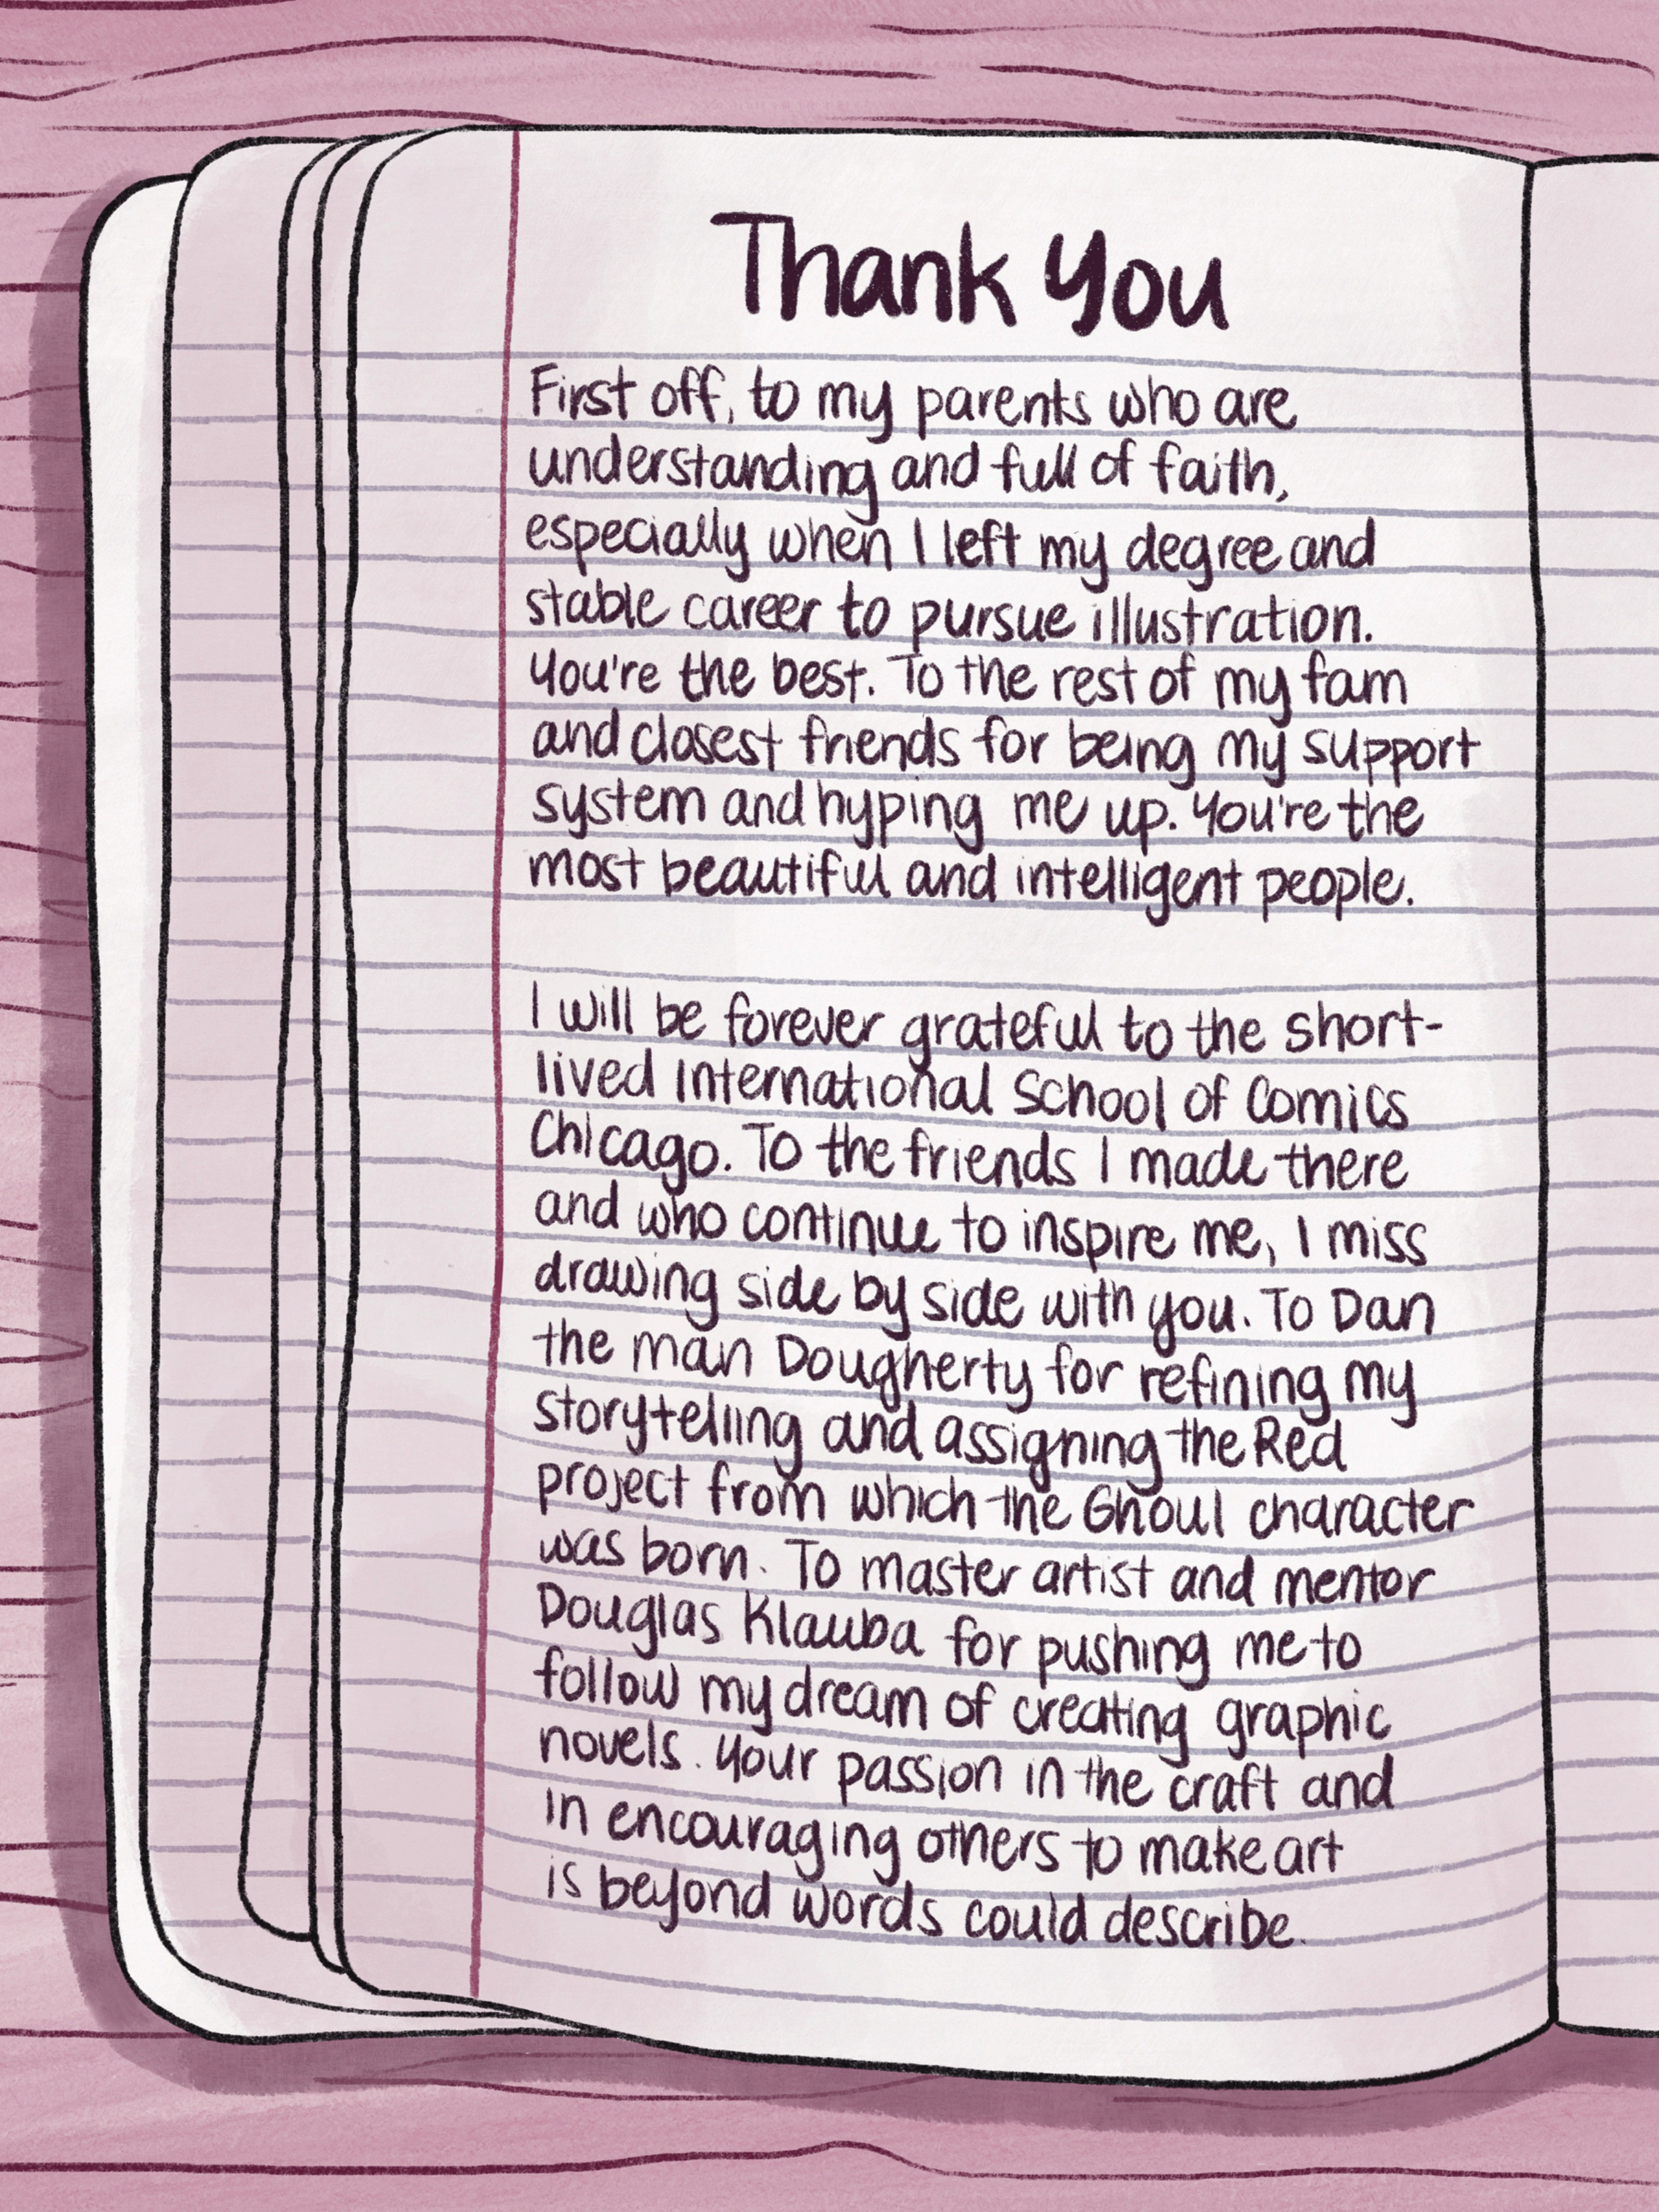 Thank You
First off, to my parents who are
understanding and full of faith,
especially when I left my degree and
stable career to pursue illustration.
You're the best. To the rest of my fam
and closest friends for being my support
system and hyping me up. You're the
most beautiful and intelligent people.
I will be forever grateful to the short-
lived International School of Comics
Chicago. To the friends I made there
and who continue to inspire me, I miss
drawing side by side with you. To Dan
the man Dougherty for refining my
storytelling and assigning the Red
project from which the Ghoul character
was born. To master artist and mentor
Douglas Klauba for pushing me to
follow my dream of creating graphic
novels. Your passion in the craft and
in encouraging others to make art
is beyond words could describe.